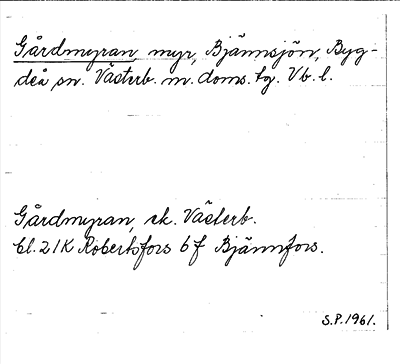 Gårdmyran, myr, Bjännsjön, Byg-
deå sn. Västerb. m. doms. tg. Vb. l.
Gårdmyran, ek. Västerb.
bl. 21K Robertsfors 6 f Bjännfors.
S.P. 1961.